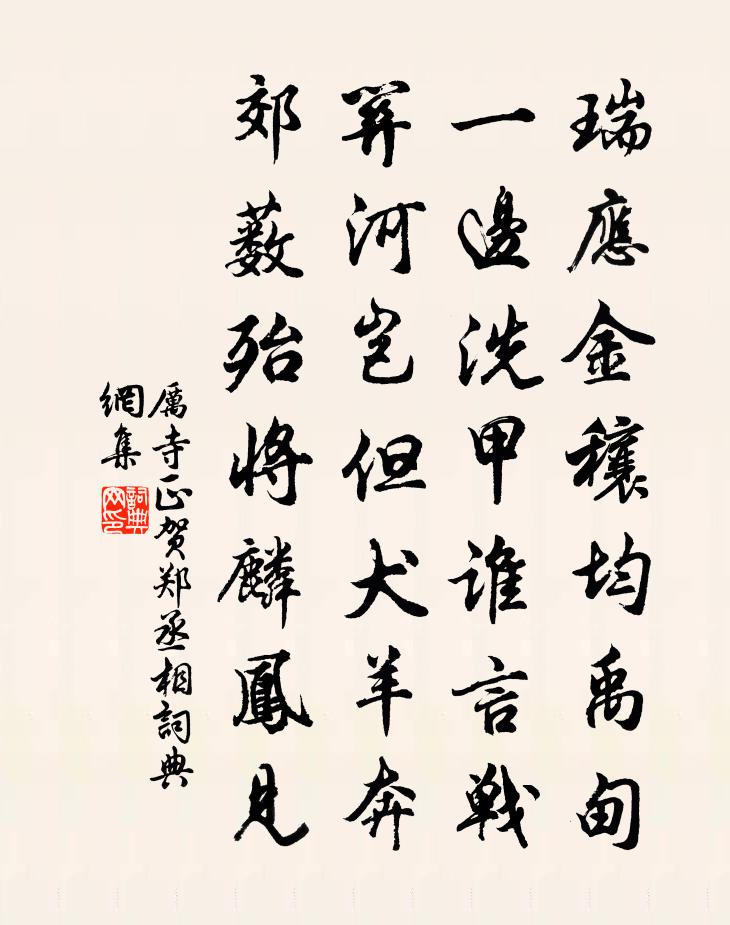 瑞應金穰均禹甸
一邊洗甲誰言戰
羿河岂但犬羊奔
郊藪殆将麟鳳見
厲寺正贺郑丞相詞典
網集
詞典網印